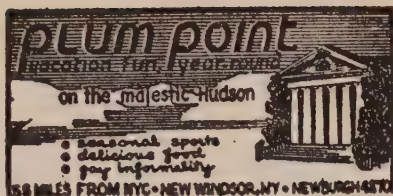 plum point
vacation fun, year-round
on the majestic Hudson
• seasonal sports
• delicious food
• gay informality
MILES FROM NYC • NEW WINDSOR, NY • NEWBURGH